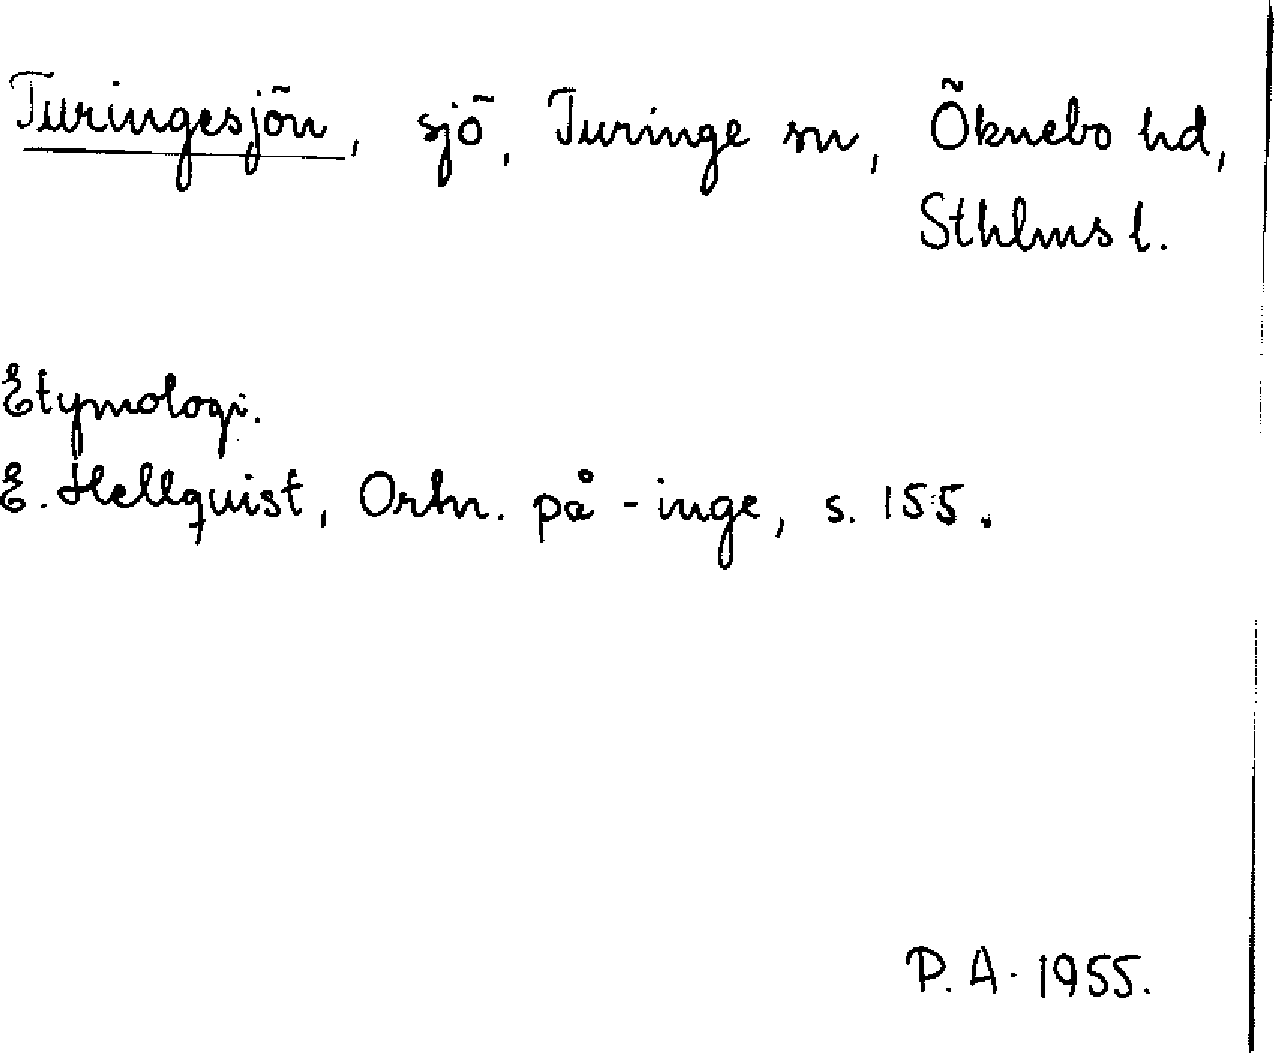 Turingesjön, sjö, Turinge sn, Öknebo hd,
Sthlms l.
Etymologi.
E. Hellquist, Ortn. på -inge, s. 155.
P. A. 1955.